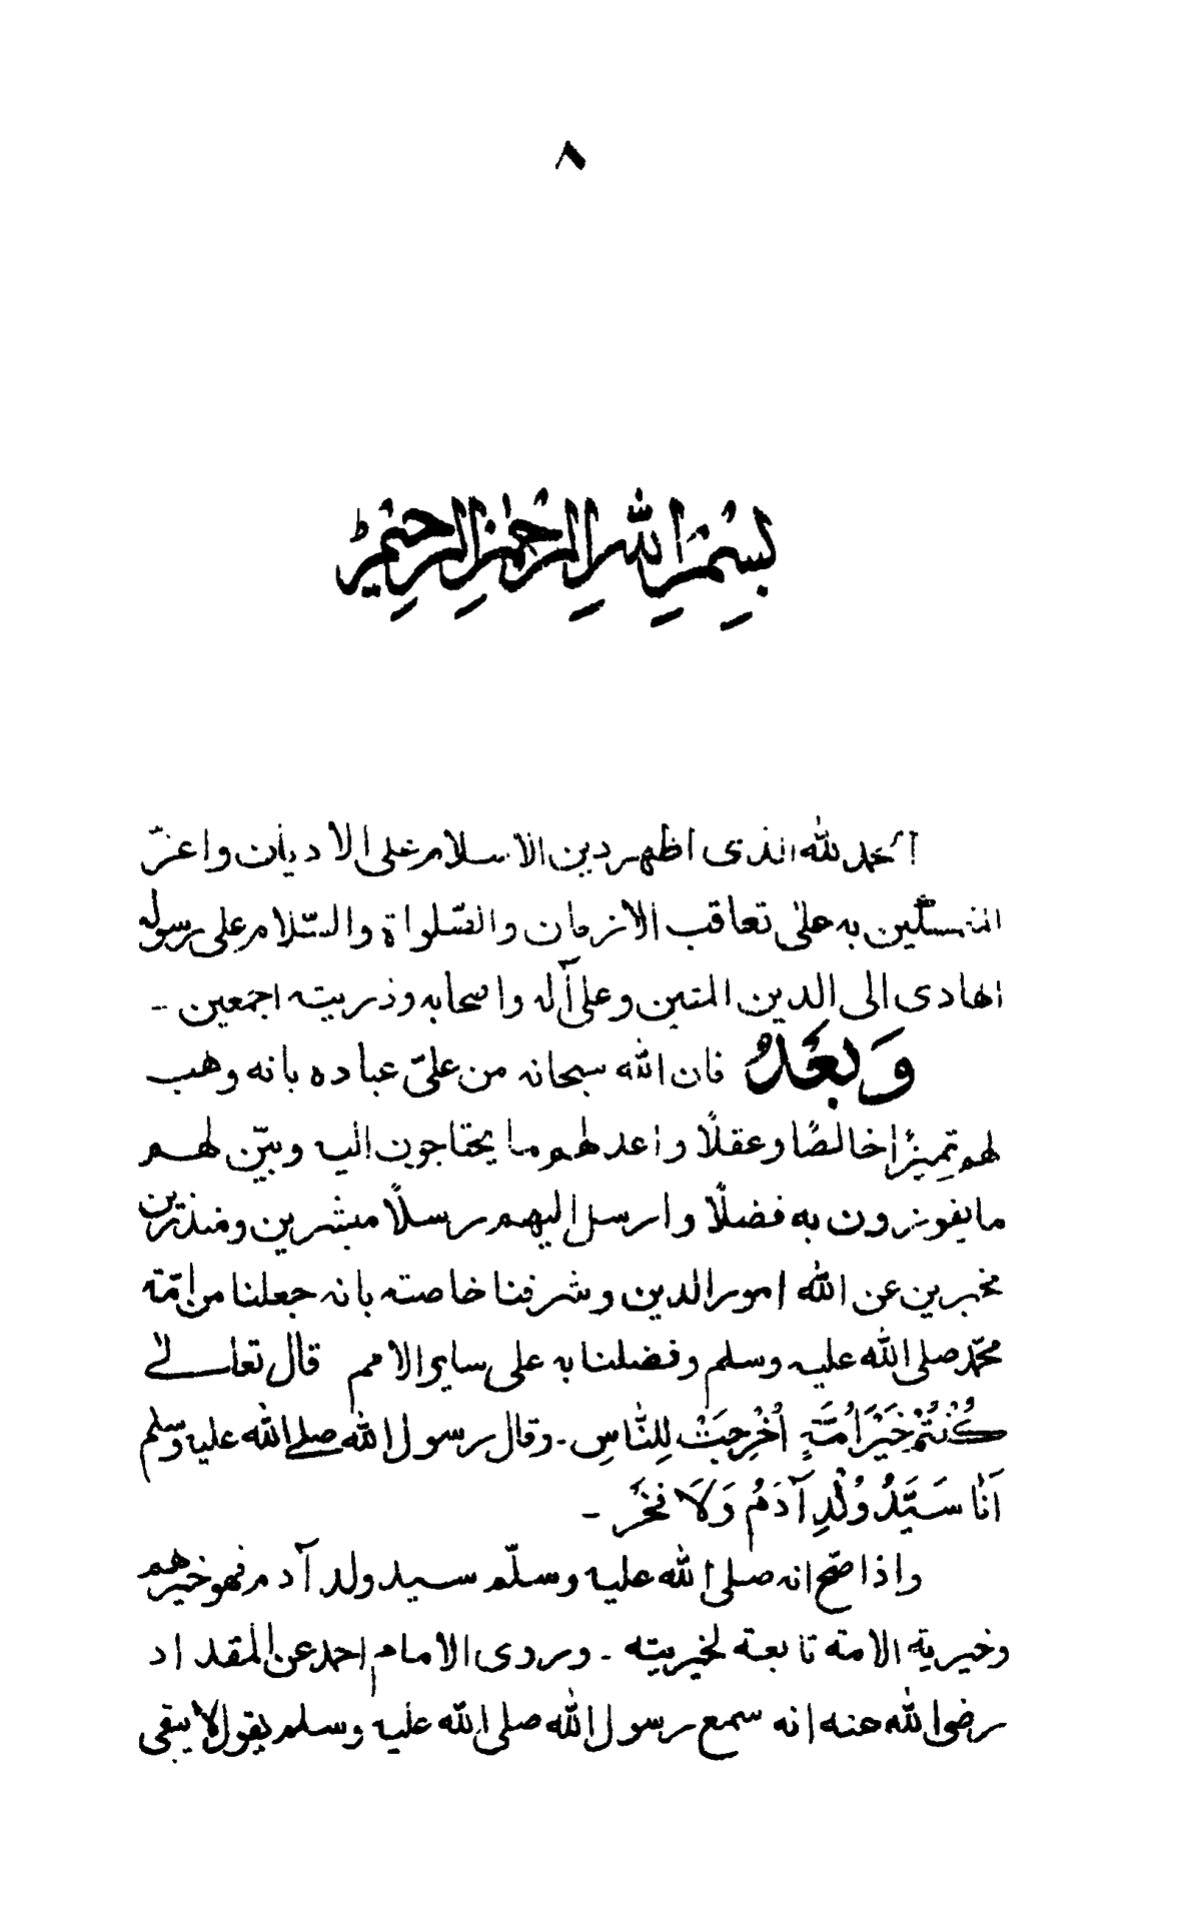 ٨
بِسْمِ اللهِ الرَّحْمٰنِ الرَّحِيْمِ
الحمد لله الذى اظهر دين الاسلام على الاديان واعزّ
المتمسّكين به على تعاقب الازمان والصّلواة والسّلام على رسوله
الهادى الى الدين المتين وعلى آله واصحابه وذريته اجمعين -
وَبَعْدُ فان الله سبحانه من علىّ عباده بانه وهب
لهم تميزًا خالصًا وعقلًا واعد لهم ما يحتاجون اليه وبيّن لهم
ما يفوزون به فضلًا وارسل اليهم رسلًا مبشرين ومنذرين
مخبرين عن الله امور الدين وشرفنا خاصته بانه جعلنا من امّته
محمّد صلى الله عليه وسلم وفضلنا به على ساير الامم قال تعالىٰ
كُنْتُمْ خَيْرَ اُمَّةٍ اُخْرِجَتْ لِلنَّاسِ - وقال رسول الله صلى الله عليه وسلم
اَنَا سَيِّدُ وُلْدِ آدَمُ وَلَا فَخَر -
واذا صّح انه صلى الله عليه وسلّم سيد ولد آدم فهو خيرهم
وخيرية الامته تابعته لخيريته - وروى الامام احمد عن المقداد
رضى الله عنه انه سمع رسول الله صلى الله عليه وسلم يقول لا يبقى